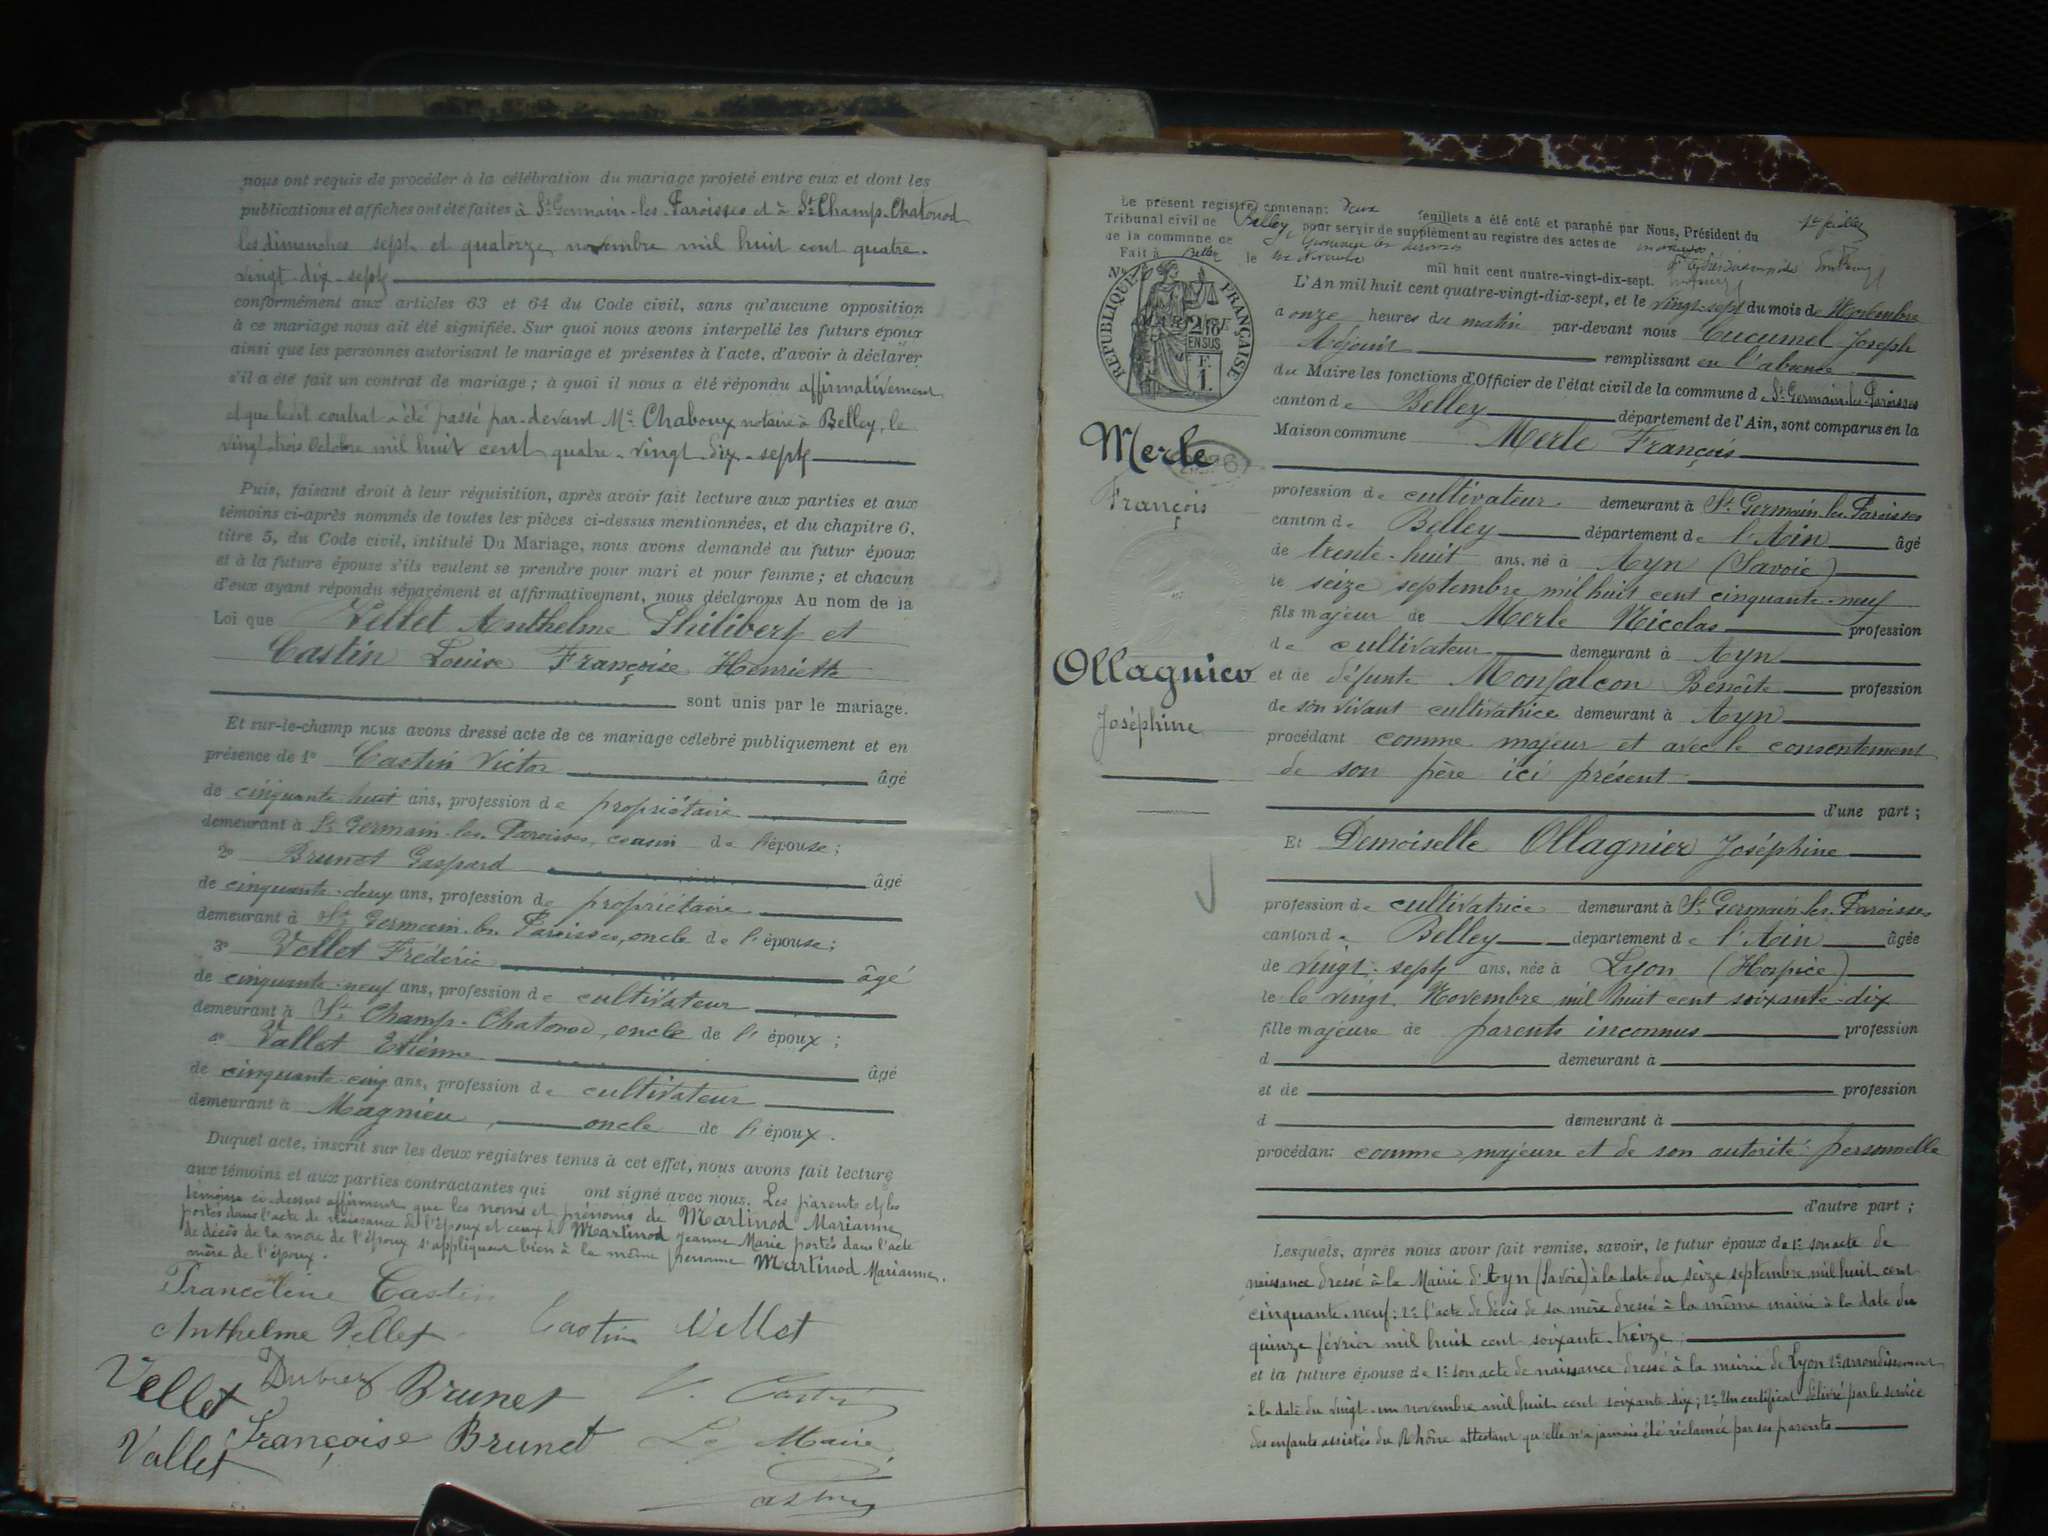 nous ont requis de procéder à la célébration du mariage projeté entre eux et dont les
publications et affiches ont été faites à St Germain-les-Paroisses et à St Champ-Chatonod
les dimanches sept et quatorze novembre mil huit cent quatre-
vingt-dix-sept
conformément aux articles 63 et 64 du Code civil, sans qu'aucune opposition
à ce mariage nous ait été signifiée. Sur quoi nous avons interpellé les futurs époux
ainsi que les personnes autorisant le mariage et présentes à l'acte, d'avoir à déclarer
s'il a été fait un contrat de mariage; à quoi il nous a été répondu affirmativement
et que ledit contrat a été passé par-devant Me Chaboux notaire à Belley, le
vingt-trois Octobre mil huit cent quatre-vingt-dix-sept
Puis, faisant droit à leur réquisition, après avoir fait lecture aux parties et aux
témoins ci-après nommés de toutes les pièces ci-dessus mentionnées, et du chapitre 6,
titre 5, du Code civil, intitulé Du Mariage, nous avons demandé au futur époux
et à la future épouse s'ils veulent se prendre pour mari et pour femme; et chacun
d'eux ayant répondu séparément et affirmativement, nous déclarons Au nom de la
Loi que Vellet Anthelme Philibert et
Castin Louise Françoise Henriette
sont unis par le mariage.
Et sur-le-champ nous avons dressé acte de ce mariage célébré publiquement et en
présence de 1° Castin Victor âgé
de cinquante-huit ans, profession de propriétaire
demeurant à St Germain-les-Paroisses, cousin de l'épouse;
2° Brunet Gaspard âgé
de cinquante-deux ans, profession de propriétaire
demeurant à St Germain-les-Paroisses, oncle de l'épouse;
3° Vellet Frédéric âgé
de cinquante-neuf ans, profession de cultivateur
demeurant à St Champ-Chatonod, oncle de l'époux;
4° Vallet Etienne âgé
de cinquante-cinq ans, profession de cultivateur
demeurant à Magnieu, oncle de l'époux.
Duquel acte, inscrit sur les deux registres tenus à cet effet, nous avons fait lecture
aux témoins et aux parties contractantes qui ont signé avec nous. Les parents et les
témoins ci-dessus affirment que les noms et prénoms de Martinod Marianne
portés dans l'acte de naissance de l'époux et ceux de Martinod Jeanne Marie portés dans l'acte
de décès de la mère de l'époux s'appliquent bien à la même personne Martinod Marianne,
mère de l'époux.
Castin
Anthelme Vellet Castin Vellet
Vellet Brunet V. Castin
Vallet Françoise Brunet Le Maire
Le présent registre contenant deux feuillets a été coté et paraphé par Nous, Président du
Tribunal civil de Belley, pour servir de supplément au registre des actes de
de la commune de
Fait à Belley le mil huit cent quatre-vingt-dix-sept.
1er feuillet
RÉPUBLIQUE FRANÇAISE
2/10
EN SUS
F.
1.
MARIAGE
L'An mil huit cent quatre-vingt-dix-sept, et le vingt-sept du mois de Novembre
à onze heures du matin par-devant nous Cucumel Joseph
Adjoint remplissant en l'absence
du Maire les fonctions d'Officier de l'état civil de la commune de St Germain-les-Paroisses
canton de Belley département de l'Ain, sont comparus en la
Maison commune Merle François
Merle
François
profession de cultivateur demeurant à St Germain-les-Paroisses
canton de Belley département de l'Ain âgé
de trente-huit ans, né à Ayn (Savoie)
le seize septembre mil huit cent cinquante-neuf
fils majeur de Merle Nicolas profession
de cultivateur demeurant à Ayn
Ollagnier
Joséphine
et de défunte Monfalcon Benoîte profession
de son vivant cultivatrice demeurant à Ayn
procédant comme majeur et avec le consentement
de son père ici présent
d'une part;
Et Demoiselle Ollagnier Joséphine
profession de cultivatrice demeurant à St Germain-les-Paroisses
canton de Belley département de l'Ain âgée
de vingt-sept ans, née à Lyon (Hospice)
le le vingt Novembre mil huit cent soixante-dix
fille majeure de parents inconnus profession
d demeurant à
et de profession
d demeurant à
procédant comme majeure et de son autorité personnelle
d'autre part;
Lesquels, après nous avoir fait remise, savoir, le futur époux de 1° son acte de
naissance dressé à la Mairie d'Ayn (Savoie) à la date du seize septembre mil huit cent
cinquante-neuf; 2° l'acte de décès de sa mère dressé à la même mairie à la date du
quinze février mil huit cent soixante-treize;
et la future épouse de 1° son acte de naissance dressé à la mairie de Lyon arrondissement
à la date du vingt-un novembre mil huit cent soixante-dix; 2° Un certificat délivré par le service
des enfants assistés du Rhône attestant qu'elle n'a jamais été réclamée par ses parents